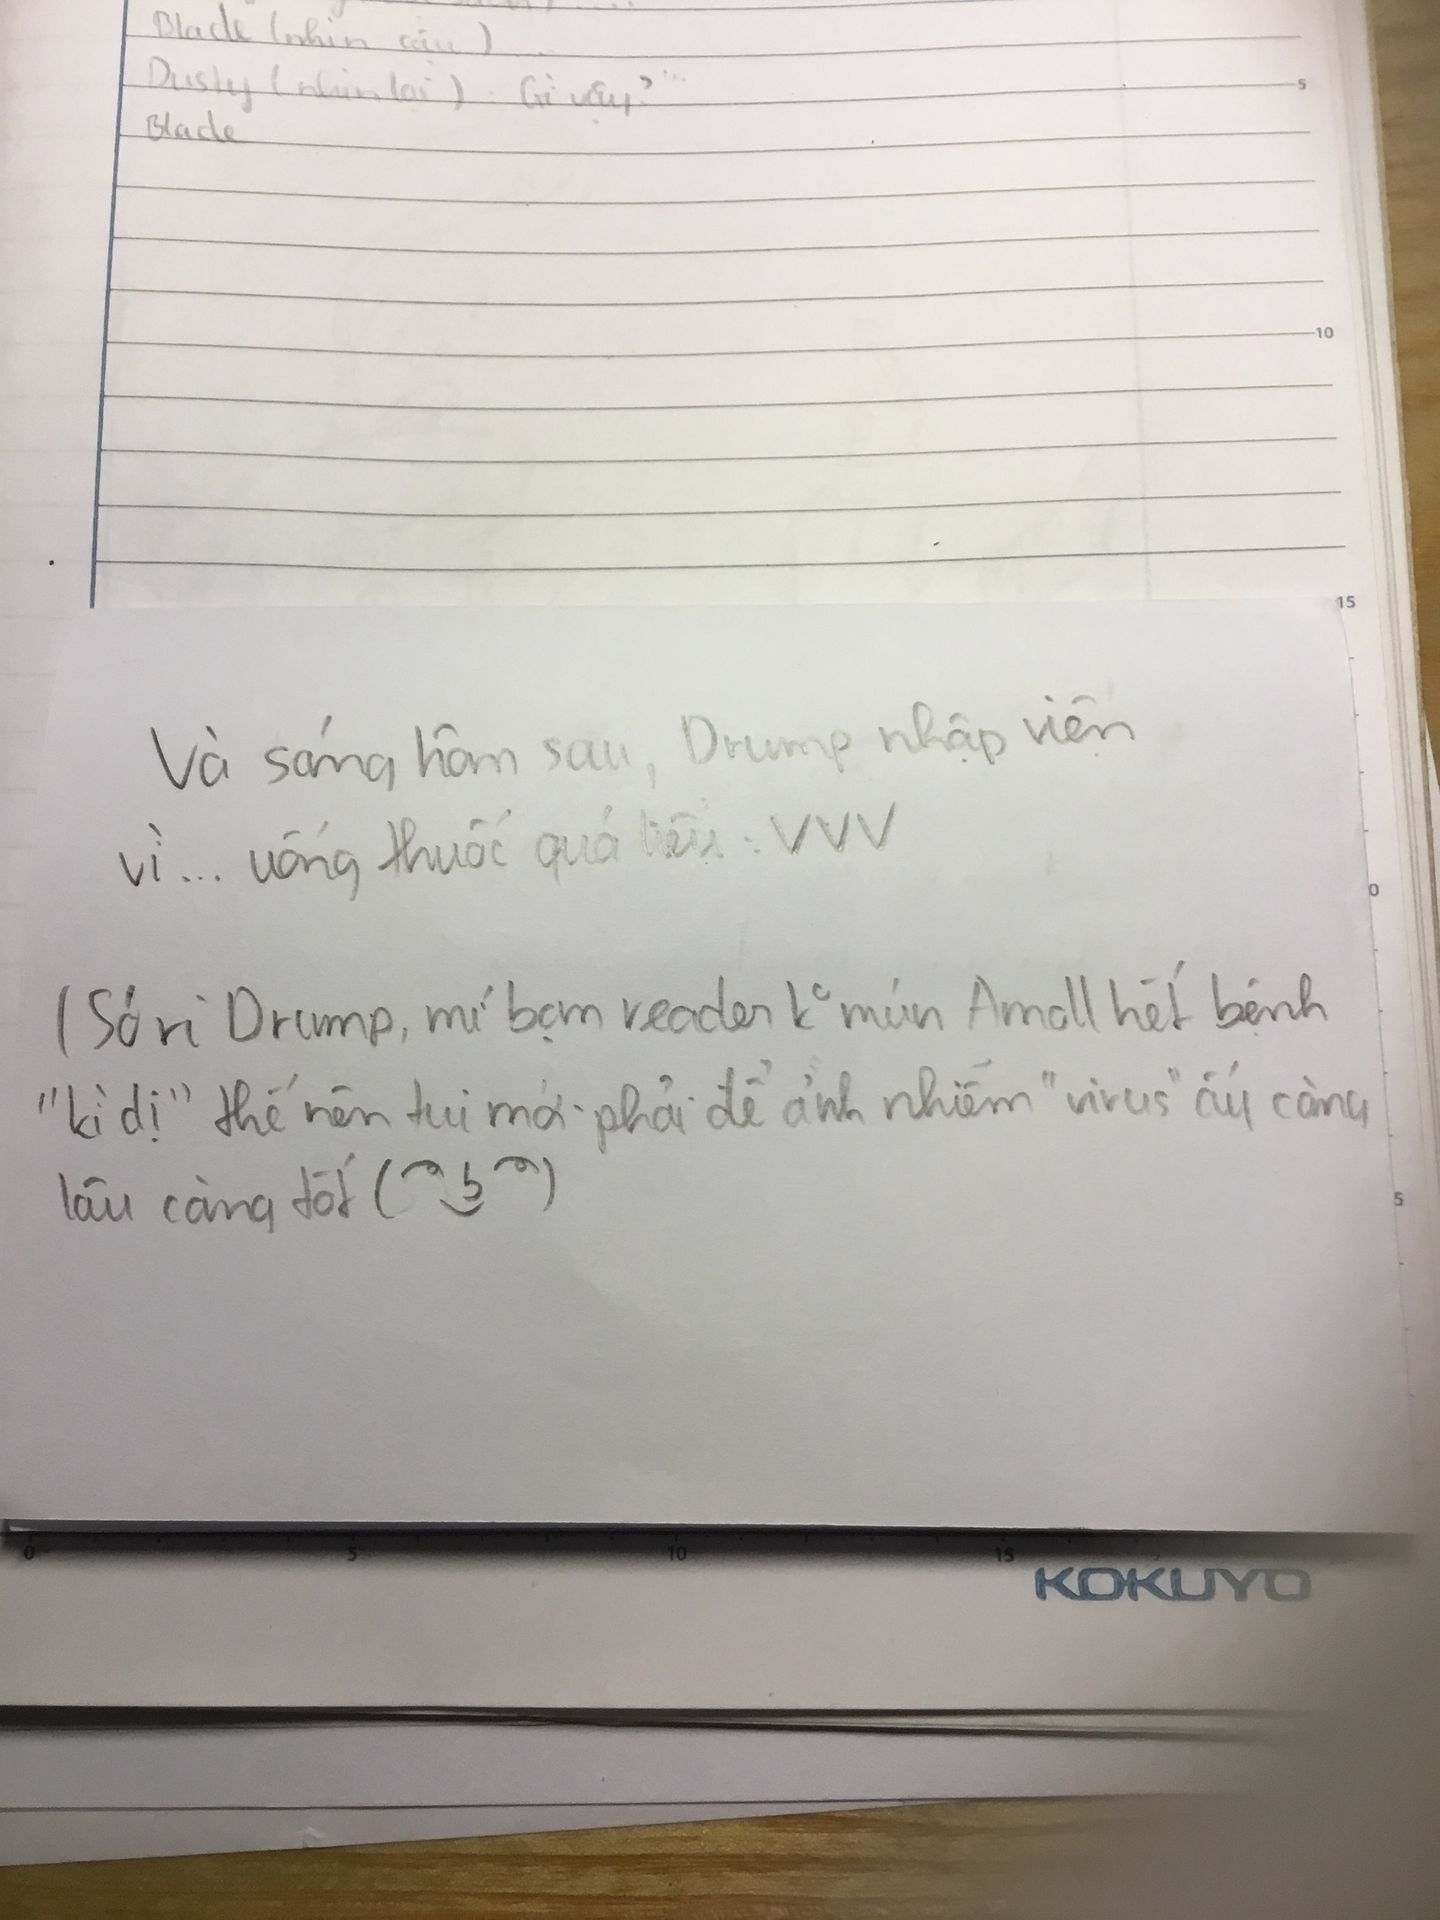 Blade (nhìn cậu) ...
Dusty (nhìn lại) : Gì vậy? ...
Blade
5
10
15
Và sáng hôm sau, Drump nhập viện
vì... uống thuốc quá liều :VVV
0
(Só ri Drump, mí bợm reader k° mún Amoll hết bệnh
"kì dị" thế nên tui mới phải để ảnh nhiễm "virus" ấy càng
lâu càng tốt ( ͡° ͜ʖ ͡°)
5
0 5 10 15
KOKUYO